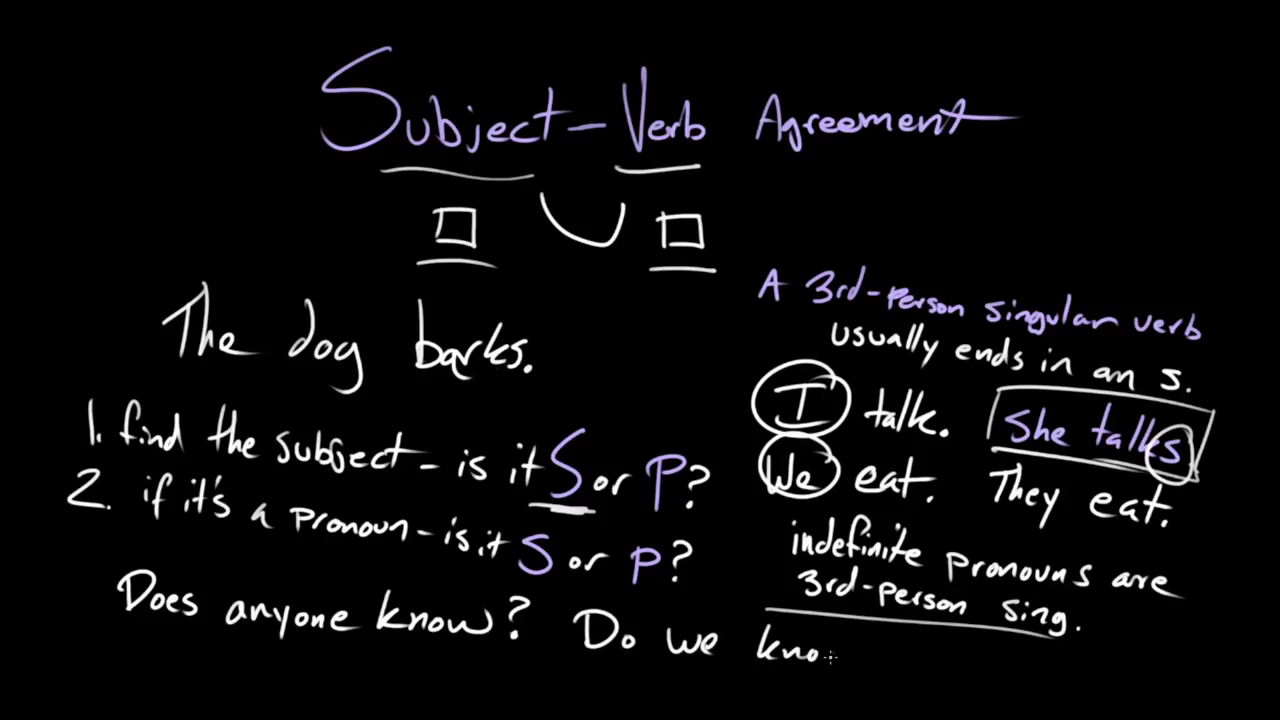 Subject-Verb Agreement
The dog barks.
1. find the subject - is it S or P?
2. if it's a pronoun - is it S or P?
Does anyone know? Do we kno
A 3rd-person singular verb
usually ends in an s.
I talk. She talks
We eat. They eat.
indefinite pronouns are
3rd-person sing.